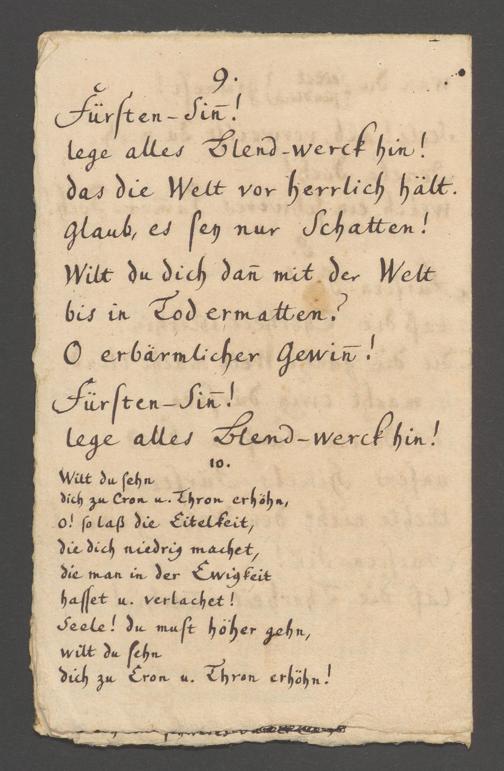 9.
Fürsten-Siñ!
lege alles Blend-werck hin!
das die Welt vor herrlich hält.
glaub, es sey nur Schatten!
Wilt du dich dañ mit der Welt
bis in Tod ermatten?
O erbärmlicher Gewiñ!
Fürsten-Siñ!
lege alles Blend-werck hin!
10.
Wilt du sehn
dich zu Cron u. Thron erhöhn,
O! so laß die Eitelkeit,
die dich niedrig machet,
die man in der Ewigkeit
hasset u. verlachet!
Seele! du must höher gehn,
wilt du sehn
dich zu Cron u. Thron erhöhn!